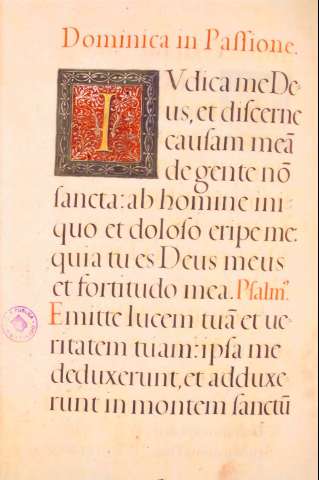 Dominica in Paſſione.
IVdica me De-
us, et diſcerne
cauſam meā
de gente nō
ſancta: ab homine ini-
quo et doloſo eripe me:
quia tu es Deus meus
et fortitudo mea. Pſalm⁹.
Emitte lucem tuā et ue-
ritatem tuam: ipſa me
deduxerunt, et adduxe-
runt in montem ſanctū